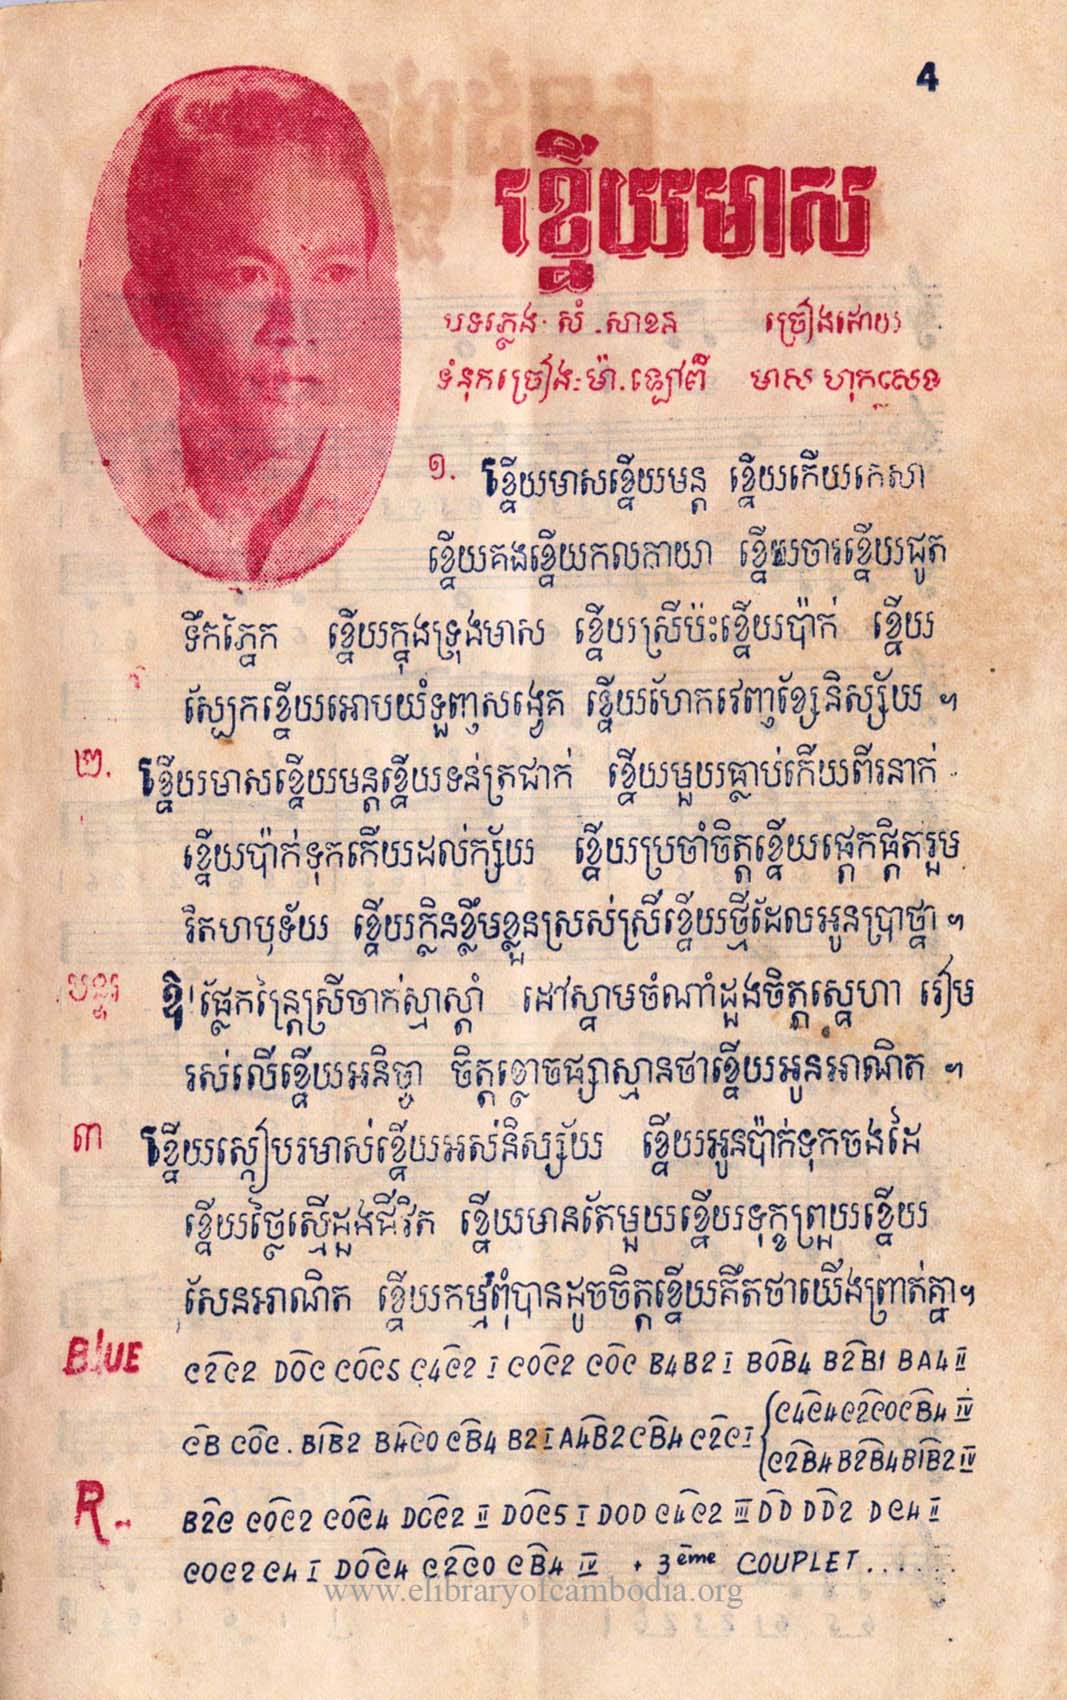 4
ខ្នើយមាស
បទភ្លេង· សំ .សាខន ច្រៀងដោយ
ទំនុកច្រៀង:ម៉ា.ឡៅពី មាស ហុកសេង
១. ខ្នើយមាសខ្នើយមន្ត ខ្នើយកើយកេសា
ខ្នើយគងខ្នើយកលកាយា ខ្នើយចារខ្នើយជូត
ទឹកភ្នែក ខ្នើយក្នុងទ្រុងមាស ខ្នើយស្រីប៉ះខ្នើយប៉ាក់ ខ្នើយ
ស្បែកខ្នើយអោបយំទួញសង្វេគ ខ្នើយហែកវេញខ្សែនិស្ស័យ ។
២. ខ្នើយមាសខ្នើយមន្តខ្នើយទន់ត្រជាក់ ខ្នើយមួយធ្លាប់កើយពីរនាក់
ខ្នើយប៉ាក់ទុកកើយដល់ក្ស័យ ខ្នើយប្រចាំចិត្តខ្នើយផ្តេកផ្តិតរួម
រិតហឫទ័យ ខ្នើយក្លិនខ្លឹមខ្លួនស្រស់ស្រីខ្នើយថ្មីដែលអូនប្រាថ្នា ។
បន្ទរ ឱ! ផ្លែកន្ត្រៃស្រីចាក់ស្មាស្តាំ ដៅស្នាមចំណាំដួងចិត្តស្នេហា រៀម
រស់លើខ្នើយអនិច្ចា ចិត្តខ្លោចផ្សាស្មានថាខ្នើយអូនអាណិត ។
៣ ខ្នើយស្តៀបរមាស់ខ្នើយអស់និស្ស័យ ខ្នើយអូនប៉ាក់ទុកចងដៃ
ខ្នើយថ្លៃស្មើដួងជីវិត ខ្នើយមានតែមួយខ្នើយទុក្ខព្រួយខ្នើយ
សែនអាណិត ខ្នើយកម្មពុំបានដូចចិត្តខ្នើយគិតថាយើងព្រាត់គ្នា។
BLUE C2C2 D0C C0C5 C4C2 I C0C2 C0C B4B2 I B0B4 B2B1 BA4 II
CB C0C . B1B2 B4C0 CB4 B2 I A4B2CB4 C2C I { C4C4C2C0CB4 IV
C2B4B2B4B1B2 IV
R.. B2C C0C2 C0C4 D0C2 II D0C5 I D0D C4C2 III DD DD2 DC4 II
C0C2 C4 I D0C4 C2C0 CB4 IV + 3ème COUPLET......
www.elibraryofcambodia.org